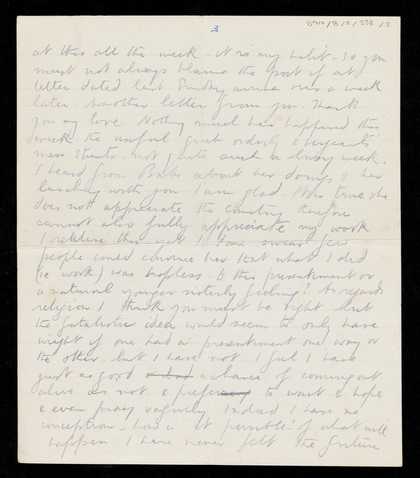 3
at this all the week. It is my habit. So you
must not always blame the post if a
letter dated last Sunday arrives over a week
later. Another letter from you. Thank
you my love. Nothing much has happened this
week the usual orderly & sergeants
mess stunts. not quite such a busy week.
I heard from about her doings & her
with you I am glad. It is true she
does not appreciate the country therefore
cannot also fully appreciate my work
I believe this yet I swear few
people could convince her that what I did
(ie work) was hopeless. Is this presentment or
a natural younger sisterly feeling? As regards
religion I think you must be right but
the fatalistic idea would seem to only have
weight if one had a presentment one way or
the other. but I have not. I feel I have
just as good a chance of coming out
alive as not & prefer to want & hope
& even pray vaguely. Indeed I have no
conception of what will
happen I have never felt the future